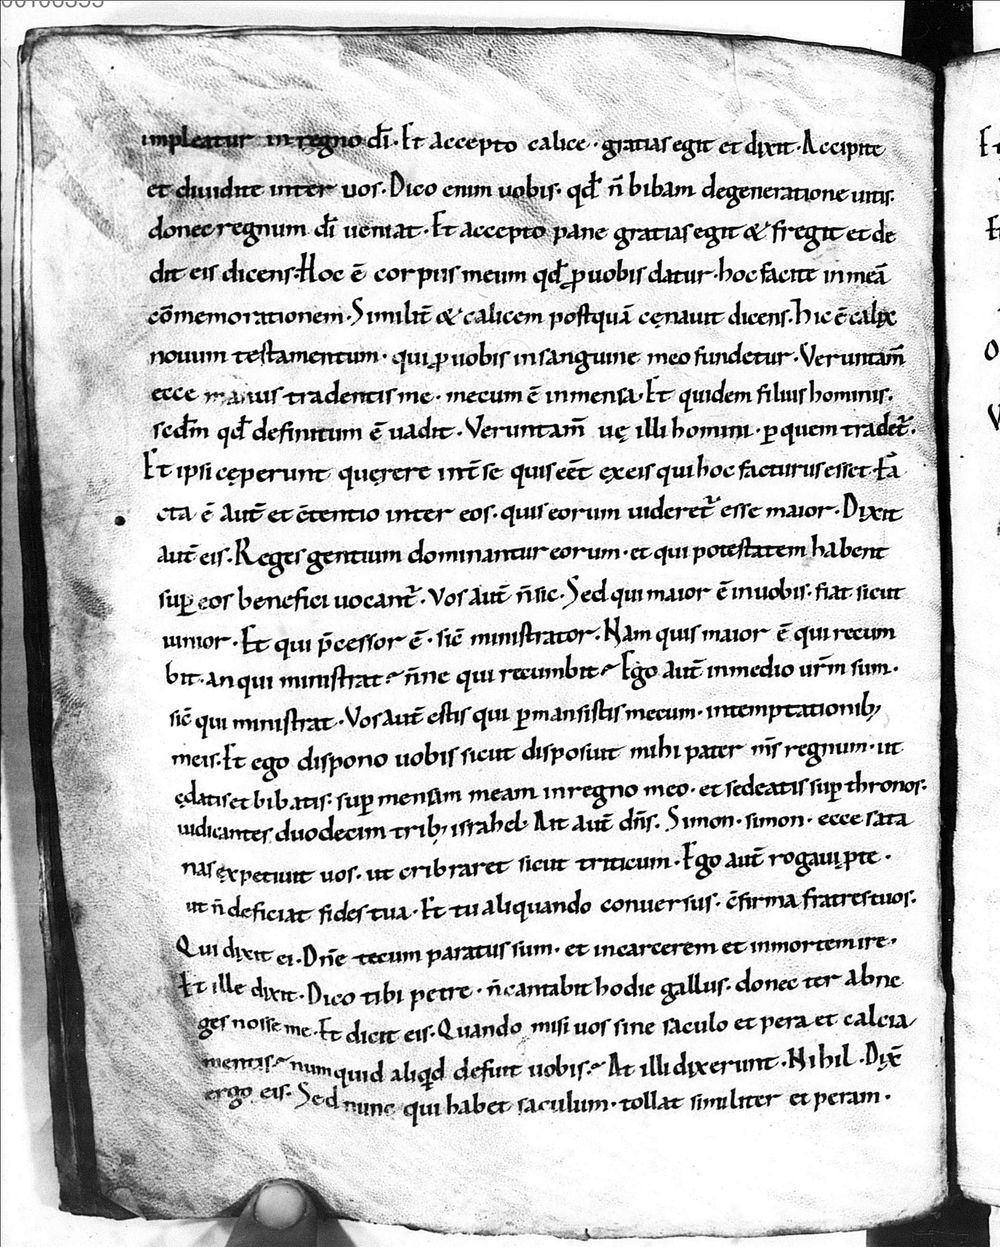 impleatur in regno dī. Et accepto calice. gratias egit et dixit. Accipite
et diuidite inter uos. Dico enim uobis. qđ n̄ bibam degeneratione uitis.
donec regnum dī ueniat. Et accepto pane gratias egit & fregit et de
dit eis dicens. Hoc ē corpus meum qđ ꝓ uobis datur. hoc facite in meā
cōmemorationem. Similit̄ & calicem postquā cęnauit dicens. hic ē calix
nouum testamentum. qui ꝓ uobis in sanguine meo fundetur. Veruntam̄
ecce manus tradentis me. mecum ē in mensa. Et quidem filius hominis.
scdm̄ qđ definitum ē uadit. Veruntam̄ uę illi homini. ꝑ quem tradet̄.
Et ipsi cęperunt quęrere int̄ se quis eēt ęx eis qui hoc facturus esset. Fa
cta ē aut̄ et c̄tentio inter eos. quis eorum uideret̄ esse maior. Dixit
aut̄ eis. Reges gentium dominantur eorum. et qui potestatem habent
sup̄ eos benefici uocant̄. Vos aut̄ n̄ sic. Sed qui maior ē in uobis. fiat sicut
iunior. Et qui p̄cessor ē. sic̄ ministrator. Nam quis maior ē qui recum
bit. an qui ministrat? n̄ne qui recumbit? Ego aut̄ in medio ur̄m sum.
sic̄ qui ministrat. Vos aut̄ estis qui ꝑmansistis mecum. in temptationib;
meis. Et ego dispono uobis sicut disposuit mihi pater m̄s regnum. ut
ędatis et bibatis. sup̄ mensam meam in regno meo. et sedeatis sup̄ thronos.
iudicantes duodecim trib; israhel. Ait aut̄ dn̄s. Simon. simon. ecce sata
nas ęxpetiuit uos. ut cribraret sicut triticum. Ego aut̄ rogaui ꝓ te.
ut n̄ deficiat fides tua. Et tu aliquando conuersus. c̄firma fratres tuos.
Qui dixit ei. Dn̄e tecum paratus sum. et in carcerem et in mortem ire.
Et ille dixit. Dico tibi petre. n̄ cantabit hodie gallus. donec ter abne
ges nosse me. Et dicit eis. Quando misi uos sine saculo et pera et calcia
mentis? numquid aliqđ defuit uobis? At illi dixerunt. Nihil. Dix̄
ergo eis. Sed nunc qui habet saculum. tollat similiter et peram.